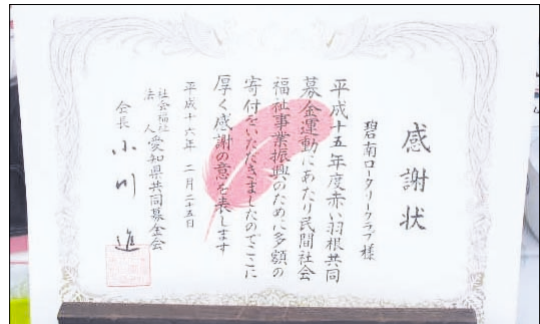 感謝状
碧南ロータリークラブ様
平成十五年度赤い羽根共同
募金運動にあたり民間社会
福祉事業振興のために多額の
寄付をいただきましたのでここに
厚く感謝の意を表します
平成十六年 二月二十五日
社会福祉法人 愛知県共同募金会
会長 小川 進